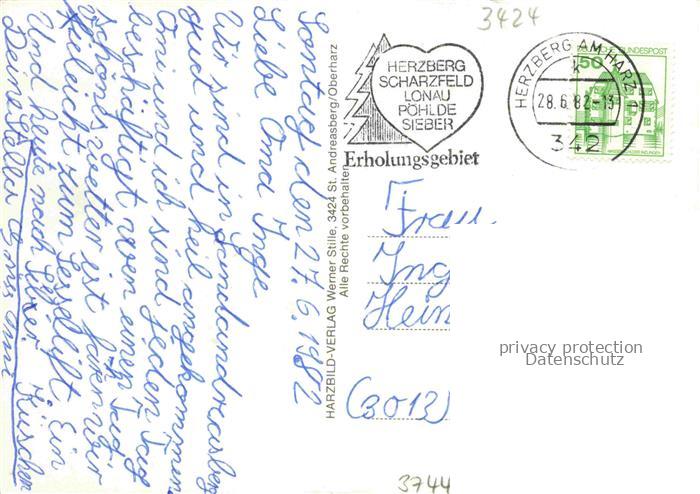 3424
HERZBERG
SCHARZFELD
LONAU
PÖHLDE
SIEBER
Erholungsgebiet
HERZBERG AM HARZ 1
k
28.6.82-13
342
50
DEUTSCHE BUNDESPOST
Sontag den 27.6.1982
Liebe Oma Inge
Wir sind in Sandandreasberg
gut und heil angekommen
Omi und ich sind jeden Tag
beschäftigt wen einen Tag
schönes wetter ist faren wir
fileicht zum Sessellift Ein
Und heute nach Sieber. Küschen
Deine
HARZBILD-VERLAG Werner Stille, 3424 St. Andreasberg/Oberharz
Alle Rechte vorbehalten
Frau
Ing
Hein
(3013)
privacy protection
Datenschutz
3744